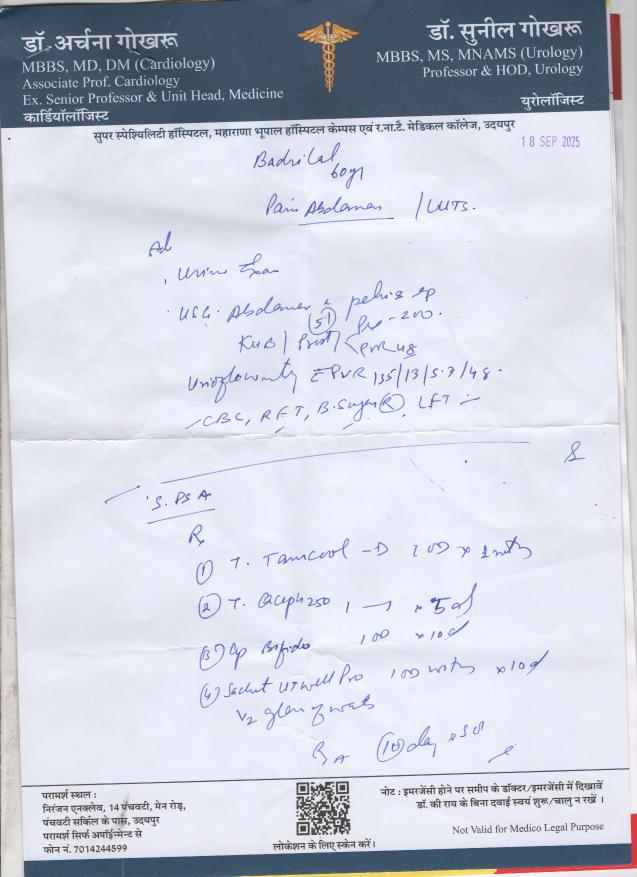 डॉ. अर्चना गोखरू
MBBS, MD, DM (Cardiology)
Associate Prof. Cardiology
Ex. Senior Professor & Unit Head, Medicine
कार्डियॉलॉजिस्ट
डॉ. सुनील गोखरू
MBBS, MS, MNAMS (Urology)
Professor & HOD, Urology
यूरोलॉजिस्ट
सुपर स्पेश्यिलिटी हॉस्पिटल, महाराणा भूपाल हॉस्पिटल केम्पस एवं र.ना.टै. मेडिकल कॉलेज, उदयपुर
18 SEP 2025
Badrilal
60yr
Pain Abdomen / LUTS.
Ad
Urine Exam
USG. Abdomen & pelvis
KUB / Prost 51 Pre - 200.
PVR 48
Uroflowmetry PVR 135/13/5.7/48.
CBC, RFT, B. Sugar (R), LFT
S. PSA
Rx
① T. Tamcool - D 1 OD x 1 mth
② T. 250 1 — 1 x 5 d
③ Cp Bifido 1 OD x 10d
④ Sachet UTwell Pro 1 OD x 10d
1/2 glass of water
10 day
परामर्श स्थल :
निरंजन एनक्लेव, 14 पंचवटी, मेन रोड़,
पंचवटी सर्किल के पास, उदयपुर
परामर्श सिर्फ अपॉईन्मेन्ट से
फोन नं. 7014244599
लोकेशन के लिए स्केन करें।
नोट : इमरजेंसी होने पर समीप के डॉक्टर/इमरजेंसी में दिखावें
डॉ. की राय के बिना दवाई स्वयं शुरू/चालु न रखें ।
Not Valid for Medico Legal Purpose